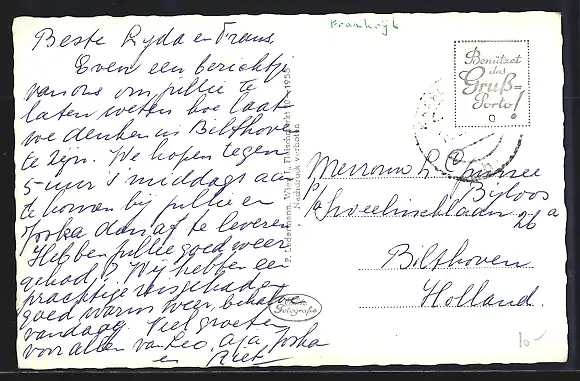 Beste Lyda en Frans,
Even een berichtje
van ons om jullie te
laten weten hoe laat
we denken in Bilthoven
te zijn. We hopen tegen
5 uur 's middags aan
te komen bij jullie en
Joska dan af te leveren
Hebben jullie goed weer
gehad? Wij hebben een
prachtige reis gehad
goed warm weer, behalve
vandaag. Veel groeten
voor allen van Leo, Joska
en Riet
P. Ledermann, Wien I, Fleischmarkt 1955
Nachdruck verboten
Fotografie
Frankrijk
Benützet
das
Gruß-
Porto!
Mevrouw L
Bijloos
p/a Sweelincklaan 26a
Bilthoven
Holland.
10-